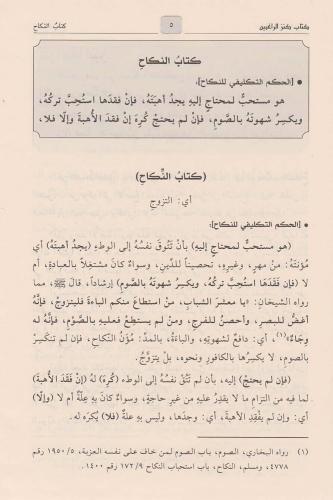 كتاب كنز الراغبين ٥ كتاب النكاح
كتاب النكاح
• [الحكم التكليفي للنكاح]:
هو مستحبٌّ لمحتاجٍ إليهِ يجدُ أهبَتَهُ، فإنْ فقدَها استُحِبَّ تركُهُ،
ويكسِرُ شهوتَهُ بالصَّومِ، فإنْ لم يحتجْ كُرِهَ إنْ فقدَ الأهبةَ وإلَّا فلا،
(كتابُ النِّكاحِ)
أي: التزوجِ
• [الحكم التكليفي للنكاح]:
(هو مستحبٌّ لمحتاجٍ إليهِ) بأنْ تَتُوقَ نفسُهُ إلى الوطءِ (يجدُ أهبَتَهُ) أي
مُؤنَتَهُ: منْ مهرٍ، وغيرِهِ، تحصيناً للدِّينِ، وسواءٌ كانَ مشتغلاً بالعبادةِ، أم
لا (فإنْ فقدَها استُحِبَّ تركُهُ، ويكسِرُ شهوتَهُ بالصَّومِ) إرشاداً، قالَ ﷺ، مما
رواه الشيخانِ: «يا معشرَ الشبابِ، منْ استطاعَ منكم الباءةَ فليتزوجْ، فإنَّهُ
أغضُّ للبصرِ، وأحصنُ للفرجِ، ومنْ لم يستطِعْ فعليهِ بالصَّوْمِ، فإنَّهُ لهُ
وِجَاءٌ»(١)، أي: دافعٌ لشهوتِهِ، والباءةُ، بالمدِّ: مؤَنُ النِّكاحِ، فإنْ لم تنكسرْ
بالصومِ، لا يكسِرُها بالكافورِ ونحوِهِ، بلْ يتزوَّجُ.
(فإنْ لم يحتجْ) إليهِ، بأن لم تَتُقْ نفسُهُ إلى الوطءِ (كُرِهَ) لهُ (إنْ فقَدَ الأهبةَ)
لما فيهِ من التزامِ ما لا يقدِرُ عليهِ من غيرِ حاجةٍ، وسواءٌ كانَ بهِ علَّةٌ أم لا (وإلَّا)
أي: وإن لم يفْقِدِ الأهبةَ، أي: وجدَها، وليس بهِ علَّةٌ (فلا) يُكرَه له.
(١) رواه البخاري، الصوم، باب الصوم لمن خاف على نفسه العزبة، ١٩٥٠/٥ رقم
٤٧٧٨، ومسلم، النكاح، باب استحباب النكاح ١٧٢/٩ رقم ١٤٠٠.